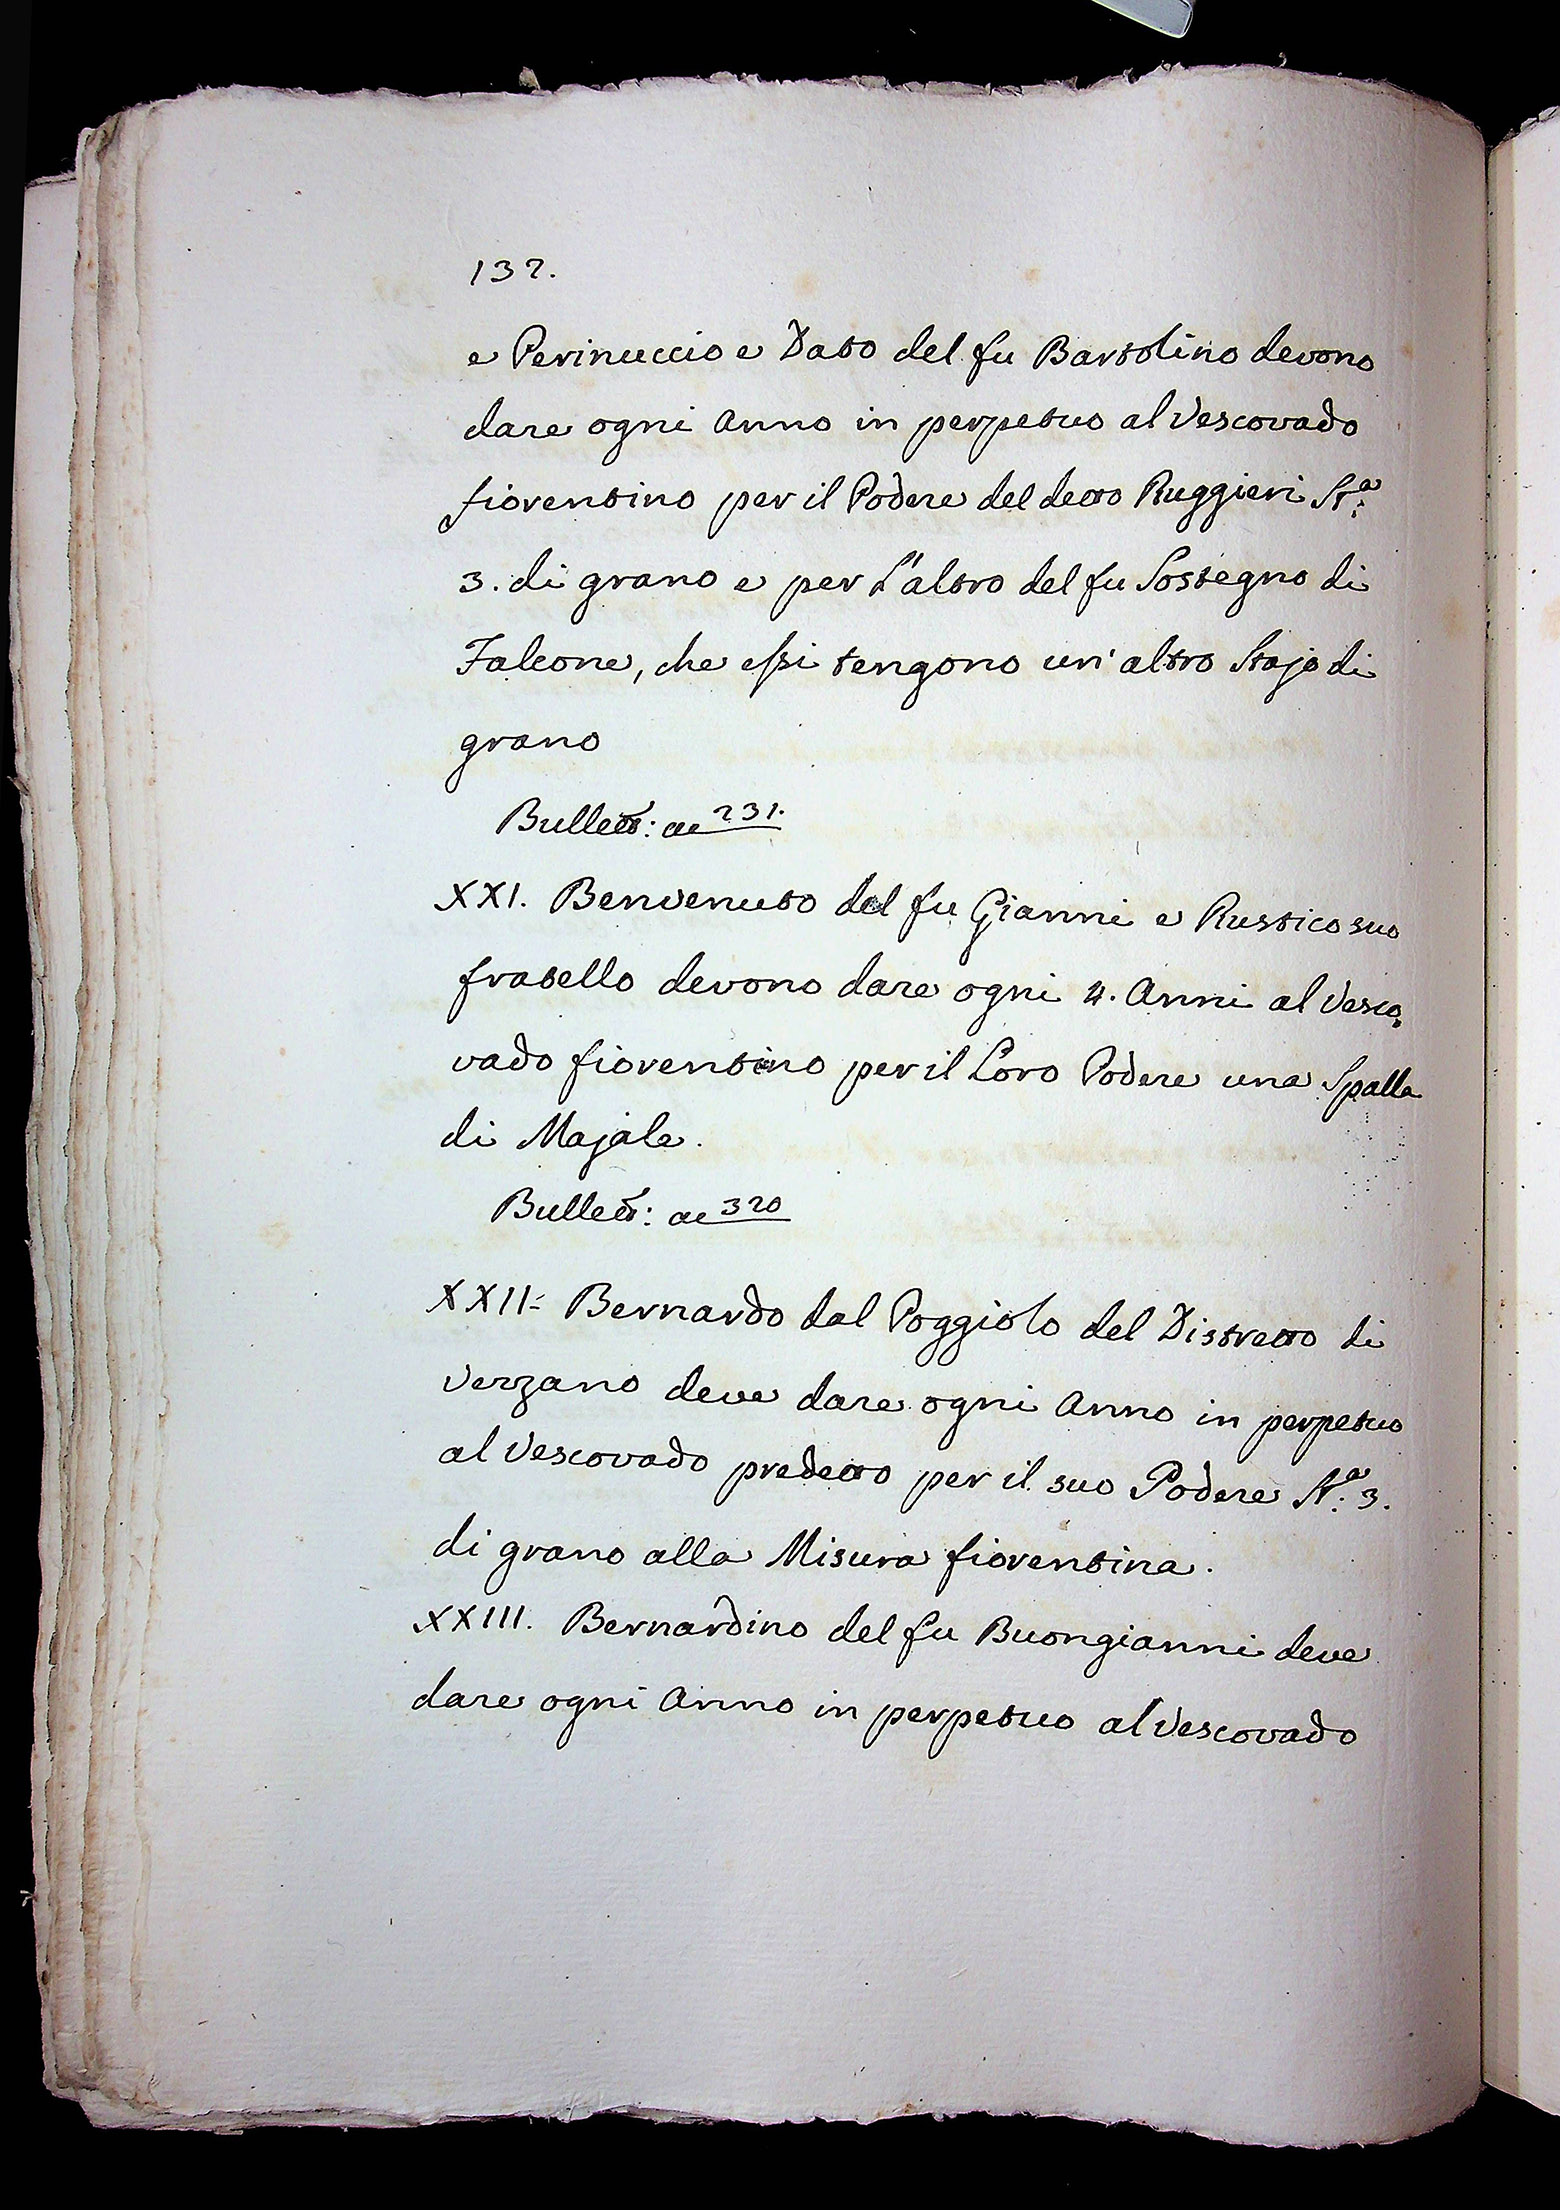 132.
e Perinuccio e Dato del fu Bartolino devono
dare ogni Anno in perpetuo al Vescovado
fiorentino per il Podere del detto Ruggieri St.ª
3. di grano e per L'altro del fu Sostegno di
Falcone, che essi tengono un'altro Stajo di
grano
Bullett: ac 231.
XXI. Benvenuto del fu Gianni e Rustico suo
fratello devono dare ogni 4. Anni al Vesco-
vado fiorentino per il Loro Podere una Spalla
di Majale.
Bullett: ac 320
XXII. Bernardo dal Poggiolo del Distretto di
Verzano deve dare ogni Anno in perpetuo
al Vescovado predetto per il suo Podere St.ª 3.
di grano alla Misura fiorentina.
XXIII. Bernardino del fu Buongianni deve
dare ogni Anno in perpetuo al Vescovado